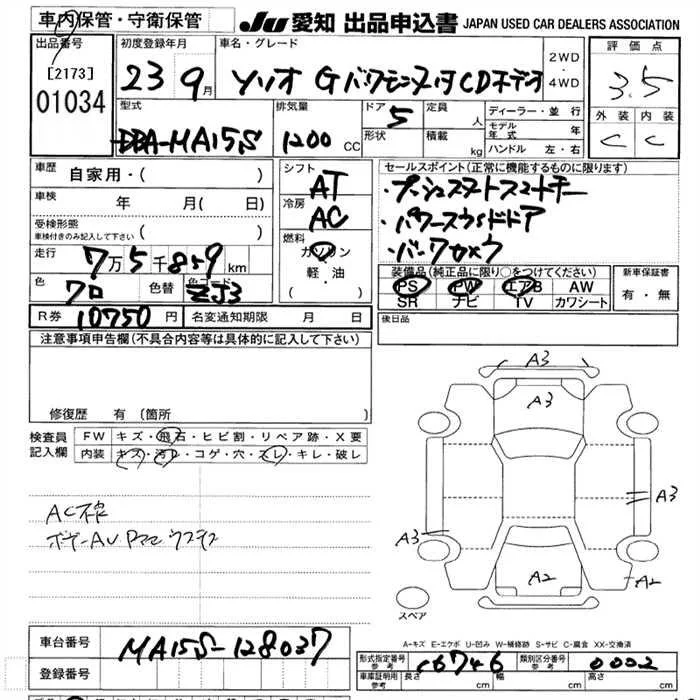 車内保管・守衛保管
JU 愛知 出品申込書 JAPAN USED CAR DEALERS ASSOCIATION
出品番号 [2173] 01034
初度登録年月 23 9月
車名・グレード ソリオ G CD
2WD・4WD
評価点 3.5
外装 C 内装 C
型式 DBA-MA15S
排気量 1200 CC
ドア 5
形状
定員 人
積載 kg
ディーラー・並行
モデル年式 年
ハンドル 左・右
車歴 自家用・( )
車検 年 月( 日)
受検形態 車検付きのみ記入して下さい ( )
走行 7万5千859km
色 クロ 色替 色コード ZJ3
シフト AT
冷房 AC
燃料 ガソリン 軽・油 ・( )
セールスポイント(正常に機能するものに限ります)
・プッシュスタートスマートキー
・パワースライドドア
・バックカメラ
装備品(純正品に限り○をつけてください)
PS PW エアB AW
SR ナビ TV カワシート
新車保証書 有・無
R券 10750 円 名変通知期限 月 日
後日品
注意事項申告欄(不具合内容等は具体的に記入して下さい)
修復歴 有(箇所
検査員記入欄
FW キズ・飛石・ヒビ割・リペア跡・X要
内装 キズ・汚れ・コゲ・穴・スレ・キレ・破レ
AC不良
A3
A3
A3
A3
A2
A2
スペア
A-キズ E-エクボ U-凹み W-補修跡 S-サビ C-腐食 XX-交換済
車台番号 MA15S-128037
登録番号
形式指定番号 参考 16746
類別区分番号 参考 0002
車庫証明用 参考 長さ cm 幅 cm 高さ cm